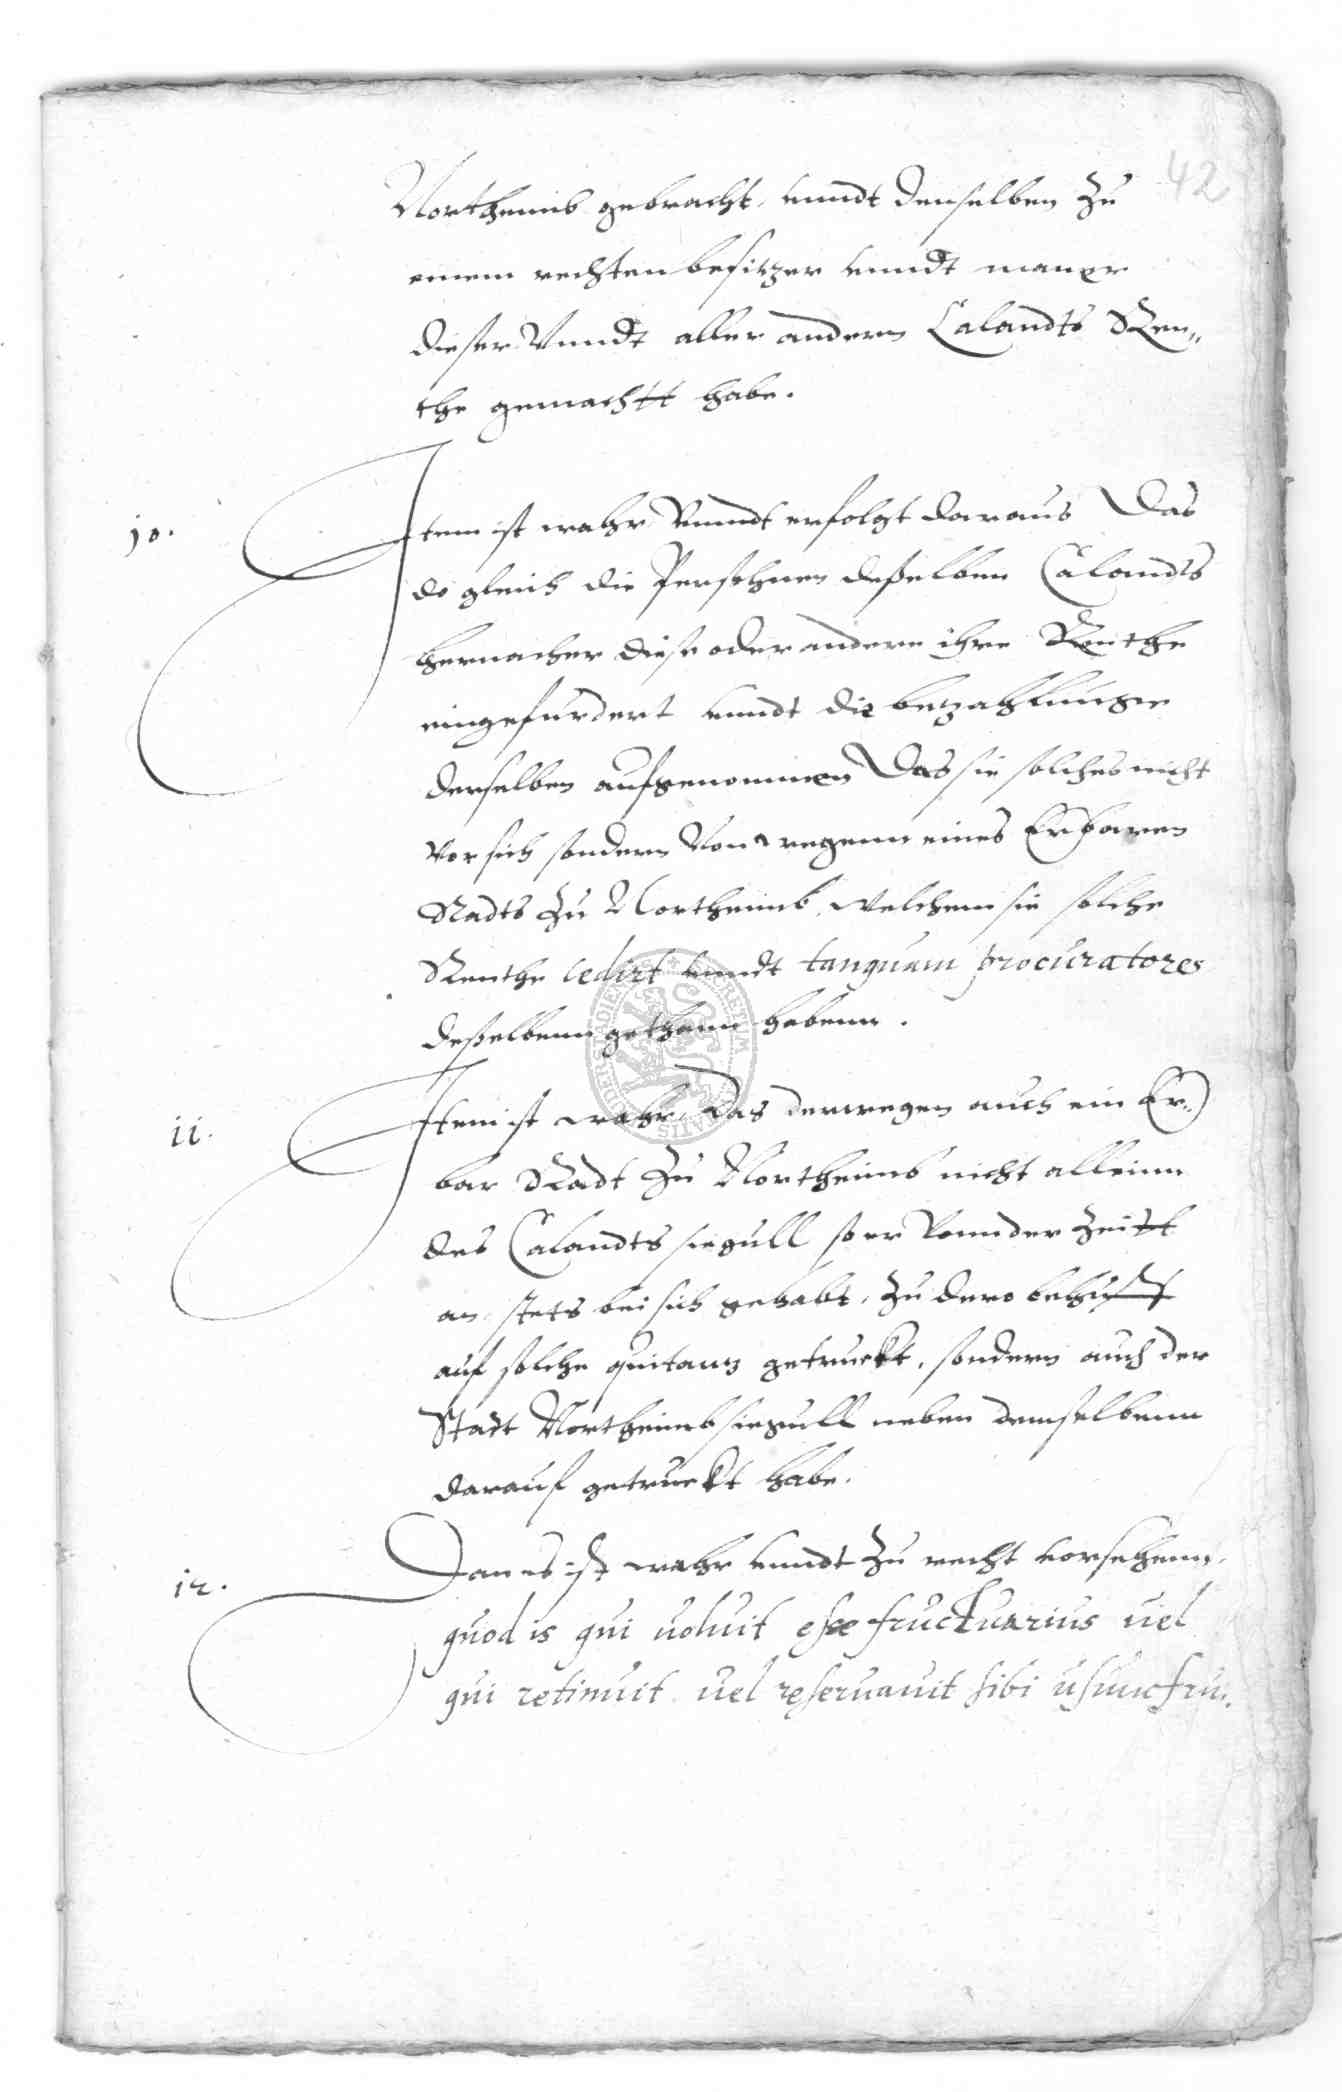 42
Northeimb gebracht, unndt denselben zu
einem rechten besitzer unndt
dieser Unndt aller andern Calandts Ren„
the gemachtt habe.
10. Item ist wahr Unndt erfolgt daraus Das
do gleich die Persohnen deßelben Calandts
hernacher diese oder andere ihre Renthe
eingefurdert unndt die betzahlunge
derselben aufgenommen Das sie solches nicht
vor sich sondern Von wegenn eines Erbaren
Radts zu Northeimb, welchem sie solche
Renthe cedirt unndt tanquam procuratores
deßelbenn gethann habenn.
11. Item ist wahr, Das derwegen auch ein Er„
bar Radt zu Northeimb nicht alleinn
des Calandts siegull so er Vonn der zeitt
an stets bei sich gehabt, zu dero behuff
auf solche quitantz getruckt, sondern auch der
Stadt Northeimb siegull neben demselbenn
darauf getruckt habe.
12. Dan es ist wahr unndt zu recht vorsehenn,
quod is qui uoluit esse fructuarius uel
qui retinuit uel reseruauit sibi usumfru„